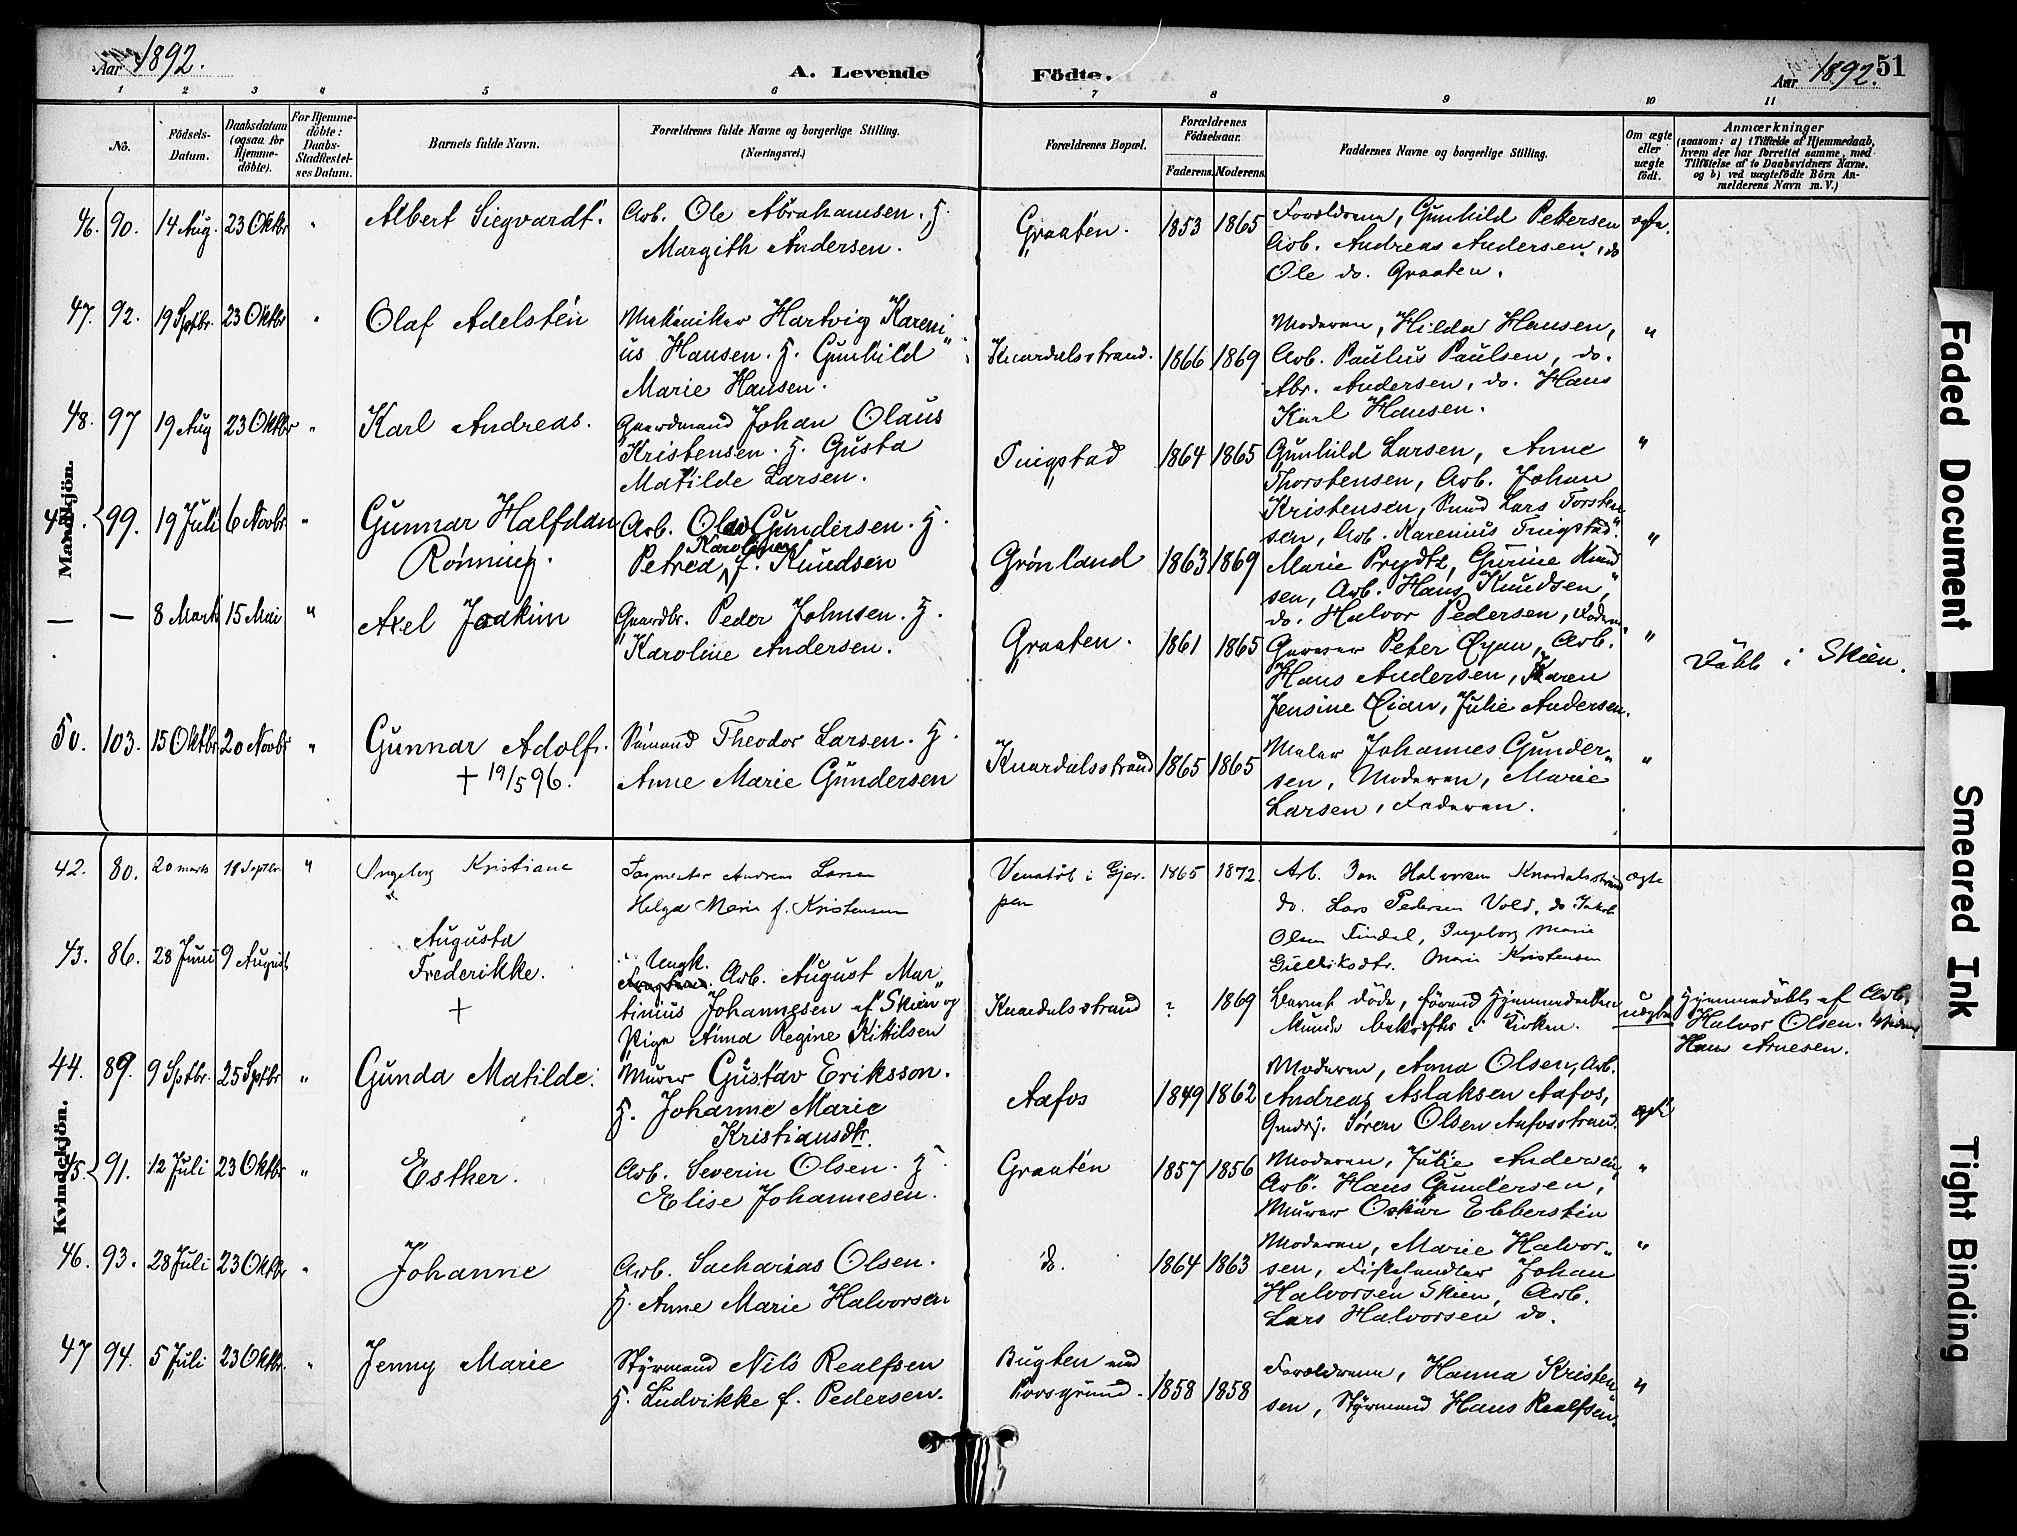 Aar 1892.
A. Levende Födte.
Aar 1892. 51
1 2 3 4 5 6 7 8 9 10 11
No.
Födsels-Datum.
Daabsdatum (ogsaa for Hjemme-döbte).
For Hjemme-döbte: Daabs-Stadfæstel-ses Datum.
Barnets fulde Navn.
Forældrenes fulde Navne og borgerlige Stilling.
(Næringsvei.)
Forældrenes Bopæl.
Forældrenes Födselsaar.
Faderens. Moderens.
Faddernes Navne og borgerlige Stilling.
Om ægte eller uægte födt.
Anmærkninger
(saasom: a) i Tilfælde af Hjemmedaab, hvem der har forrettet samme, med Tilföielse af to Daabsvidners Navne, og b) ved uægtefödte Börn An-melderens Navn m. V.)
Mandkjön.
46. 90. 14 Aug. 23 Oktbr " Albert Siegvardt. Arb. Ole Abrahamsen. H.
Margith Andersen.
Graaten. 1853 1865 Forældrene, Gunhild Pettersen
Arb. Andreas Andersen, do
Ole do. Graaten.
ægte.
47. 92. 19 Sptbr. 23 Oktbr " Olaf Adelstén Mekaniker Hartvig Kareni
us Hansen. H. Gunhild
Marie Hansen.
Knardalsstrand. 1866 1869 Moderen, Hilda Hansen,
Arb. Paulus Paulsen, do.
Abr. Andersen, do. Hans
Karl Hansen.
"
48. 97 19 Aug 23 Oktbr " Karl Andreas. Gaardmand Johan Olaus
Kristensen. H. Gusta
Matilde Larsen.
Tuigstad 1864 1865 Gunhild Larsen, Anne
Thorstensen, Arb. Johan
Kristensen, Lars Torsten
sen, Arb. Karenius Tuigstad.
"
99. 19 Juli 6 Novbr. " Gunnar Halfdan
Rönning.
Arb. Olav Gundersen. H.
Petrea Karoline f. Knudsen
Grönland 1863 1869 Marie Prydtz, Gurine Knud
sen, Arb. Hans Knudsen,
do. Halvor Pedersen,
"
— — 8 Marts 15 Mai " Axel Joakim Gaardbr. Peder Johnsen. H.
Karoline Andersen.
Graaten. 1861 1865 Garver Peter Öyan, Arb.
Hans Andersen, Karen
Jensine Öian, Julie Andersen.
" Döbt i Skien.
50. 103. 15 Oktbr 20 Novbr " Gunnar Adolf.
+ 19/5 96.
Sömand Theodor Larsen. H.
Anne Marie Gundersen
Knardalsstrand 1865 1865 Maler Johannes Gunder-
sen, Moderen, Marie
Larsen, Faderen.
"
Kvindekjön.
42. 80. 20 marts 18 Septbr. " Ingeborg Kristiane Andreas Larsen
Helga Marie f. Kristensen
Venstöb i Gjer-
pen
1865 1872. Arb. Jan Halvorsen Knardalsstrand
do. Lars Pedersen Vold, do Jakob
Olsen Findal, Ingeborg Marie
Gulliksdtr. Marie Kristensen
ægte
43. 86. 28 Juni 9 August Augusta
Frederikke.
+
Ungk. Arb. August Mar
tinius Johannesen af Skien og
Pige Anna Regine Kittilsen
Knardalsstrand ? 1869 Barnet döde, förend Hjemmedaaben
kunde bekræftes i Kirken.
uægte Hjemmedöbt af Arb.
Halvor Olsen.
Hans Arnesen.
44. 89. 9 Sptbr. 25 Sptbr " Gunda Matilde. Murer Gustav Eriksson.
H. Johanne Marie
Kristiansdtr.
Aafos 1849 1862 Moderen, Anna Olsen, Arb.
Andreas Aslaksen Aafos,
Gmdsj. Sören Olsen Aafosstrand
ægte
45. 91. 12 Juli 23 Oktbr " Esther. Arb. Severin Olsen. H.
Elise Johannesen.
Graatén 1857 1856 Moderen, Julie Andersen,
Arb. Hans Gundersen,
Murer Oskar Ebberstén
"
46. 93. 28 Juli 23 Oktbr " Johanne Arb. Sacharias Olsen.
H. Anne Marie Halvorsen
do. 1864 1863 Moderen, Marie Halvor-
sen, Fiskehandler Johan
Halvorsen Skien, Arb.
Lars Halvorsen do.
"
47 94. 5 Juli 23 Oktbr. " Jenny Marie Styrmand Nils Realfsen
H. Ludvikke f. Pedersen.
Bugten ved
Porsgrund. 1858 1858 Forældrene, Hanna Kristen
sen, Styrmand Hans Realfsen.
"
Faded Document
Smeared Ink
Tight Binding